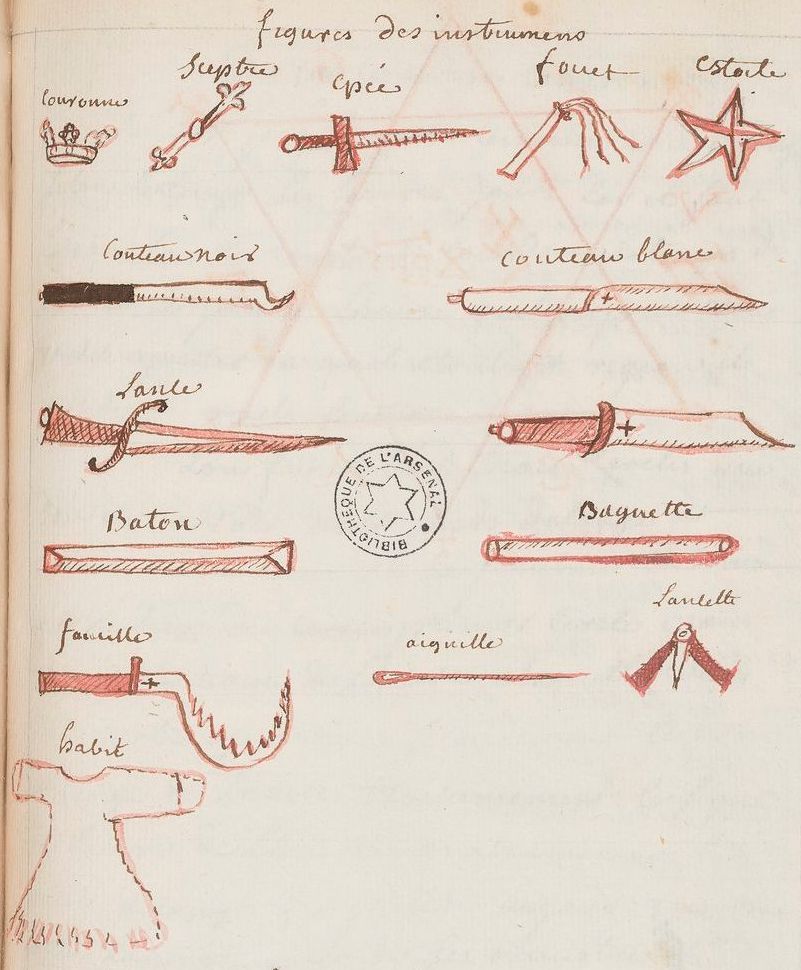 figures des instrumens
Couronne
Sceptre
Epée
fouet
Estoile
Couteau noir
Couteau blanc
Lance
BIBLIOTHEQUE DE L'ARSENAL
Baton
Baguette
faucille
aiguille
Lancette
habit